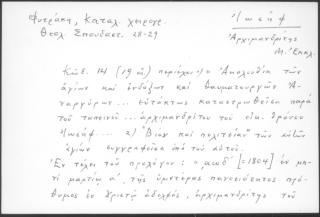 Φυτράκη, Καταλ. χειρογρ.
Θεολ. Σπουδαστ. 28-29
Ἰωσήφ
Ἀρχιμανδρίτης
Μ. Ἐκκλ.
Κῶδ. 14 [19 αἰ] περιέχει 1) « Ἀκολουθία τῶν
ἁγίων καὶ ἐνδόξων καὶ θαυματουργῶν Ἀ-
ναργύρων ... εὐτάκτως καταστρωθεῖσα παρὰ
τοῦ ταπεινοῦ ... ἀρχιμανδρίτου τοῦ οἰκ. θρόνου
Ἰωσήφ ... 2) "Βίος καὶ πολιτεία" τῶν αὐτῶν
ἁγίων συγγραφεῖσα ὑπὸ τοῦ αὐτοῦ.
Ἐν τέλει τοῦ προλόγου : « ͵αωδʹ [=1804] ἐν μη-
νὶ μαρτίῳ αʹ, τῆς ὑμετέρας πανοσιότητος πρό-
θυμος ἐν Χριστῷ ἀδελφός, ἀρχιμανδρίτης τοῦ